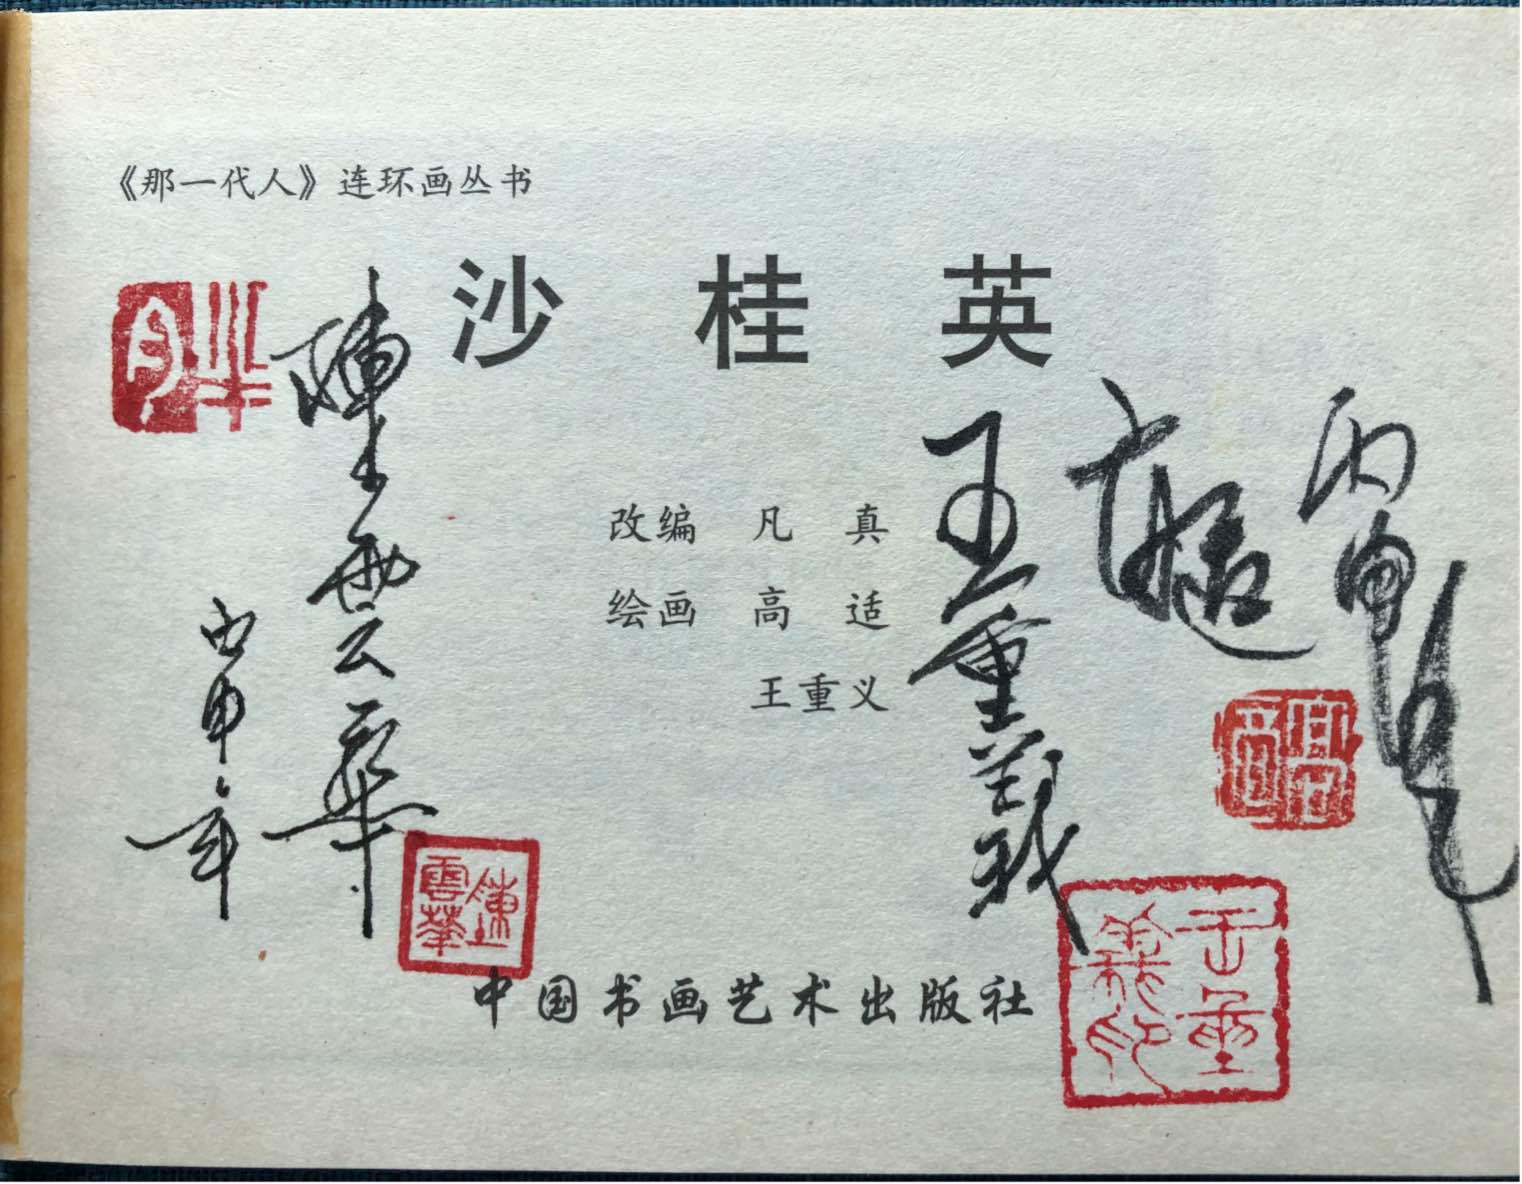 《那一代人》连环画丛书
沙桂英
改编 凡真
绘画 高适
王重义
中国书画艺术出版社
陈云华
丙申年
王重義
高适
丙申
陳雲華
高适
王重義印